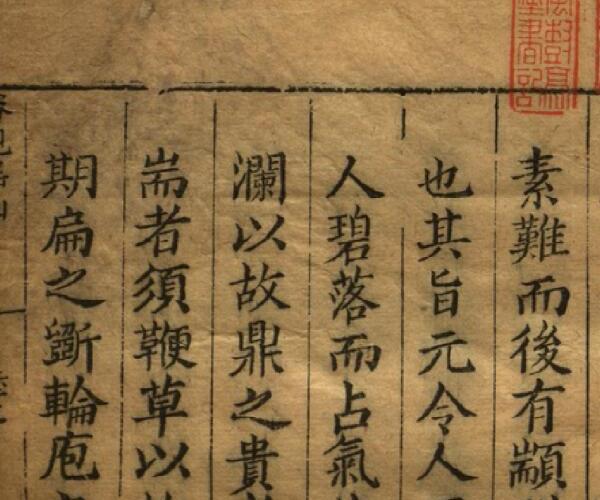 素難而後有顓
也其旨元令人
人碧落而占氣
瀾以故鼎之貴
耑者須鞭草以
期扁之斵輪庖